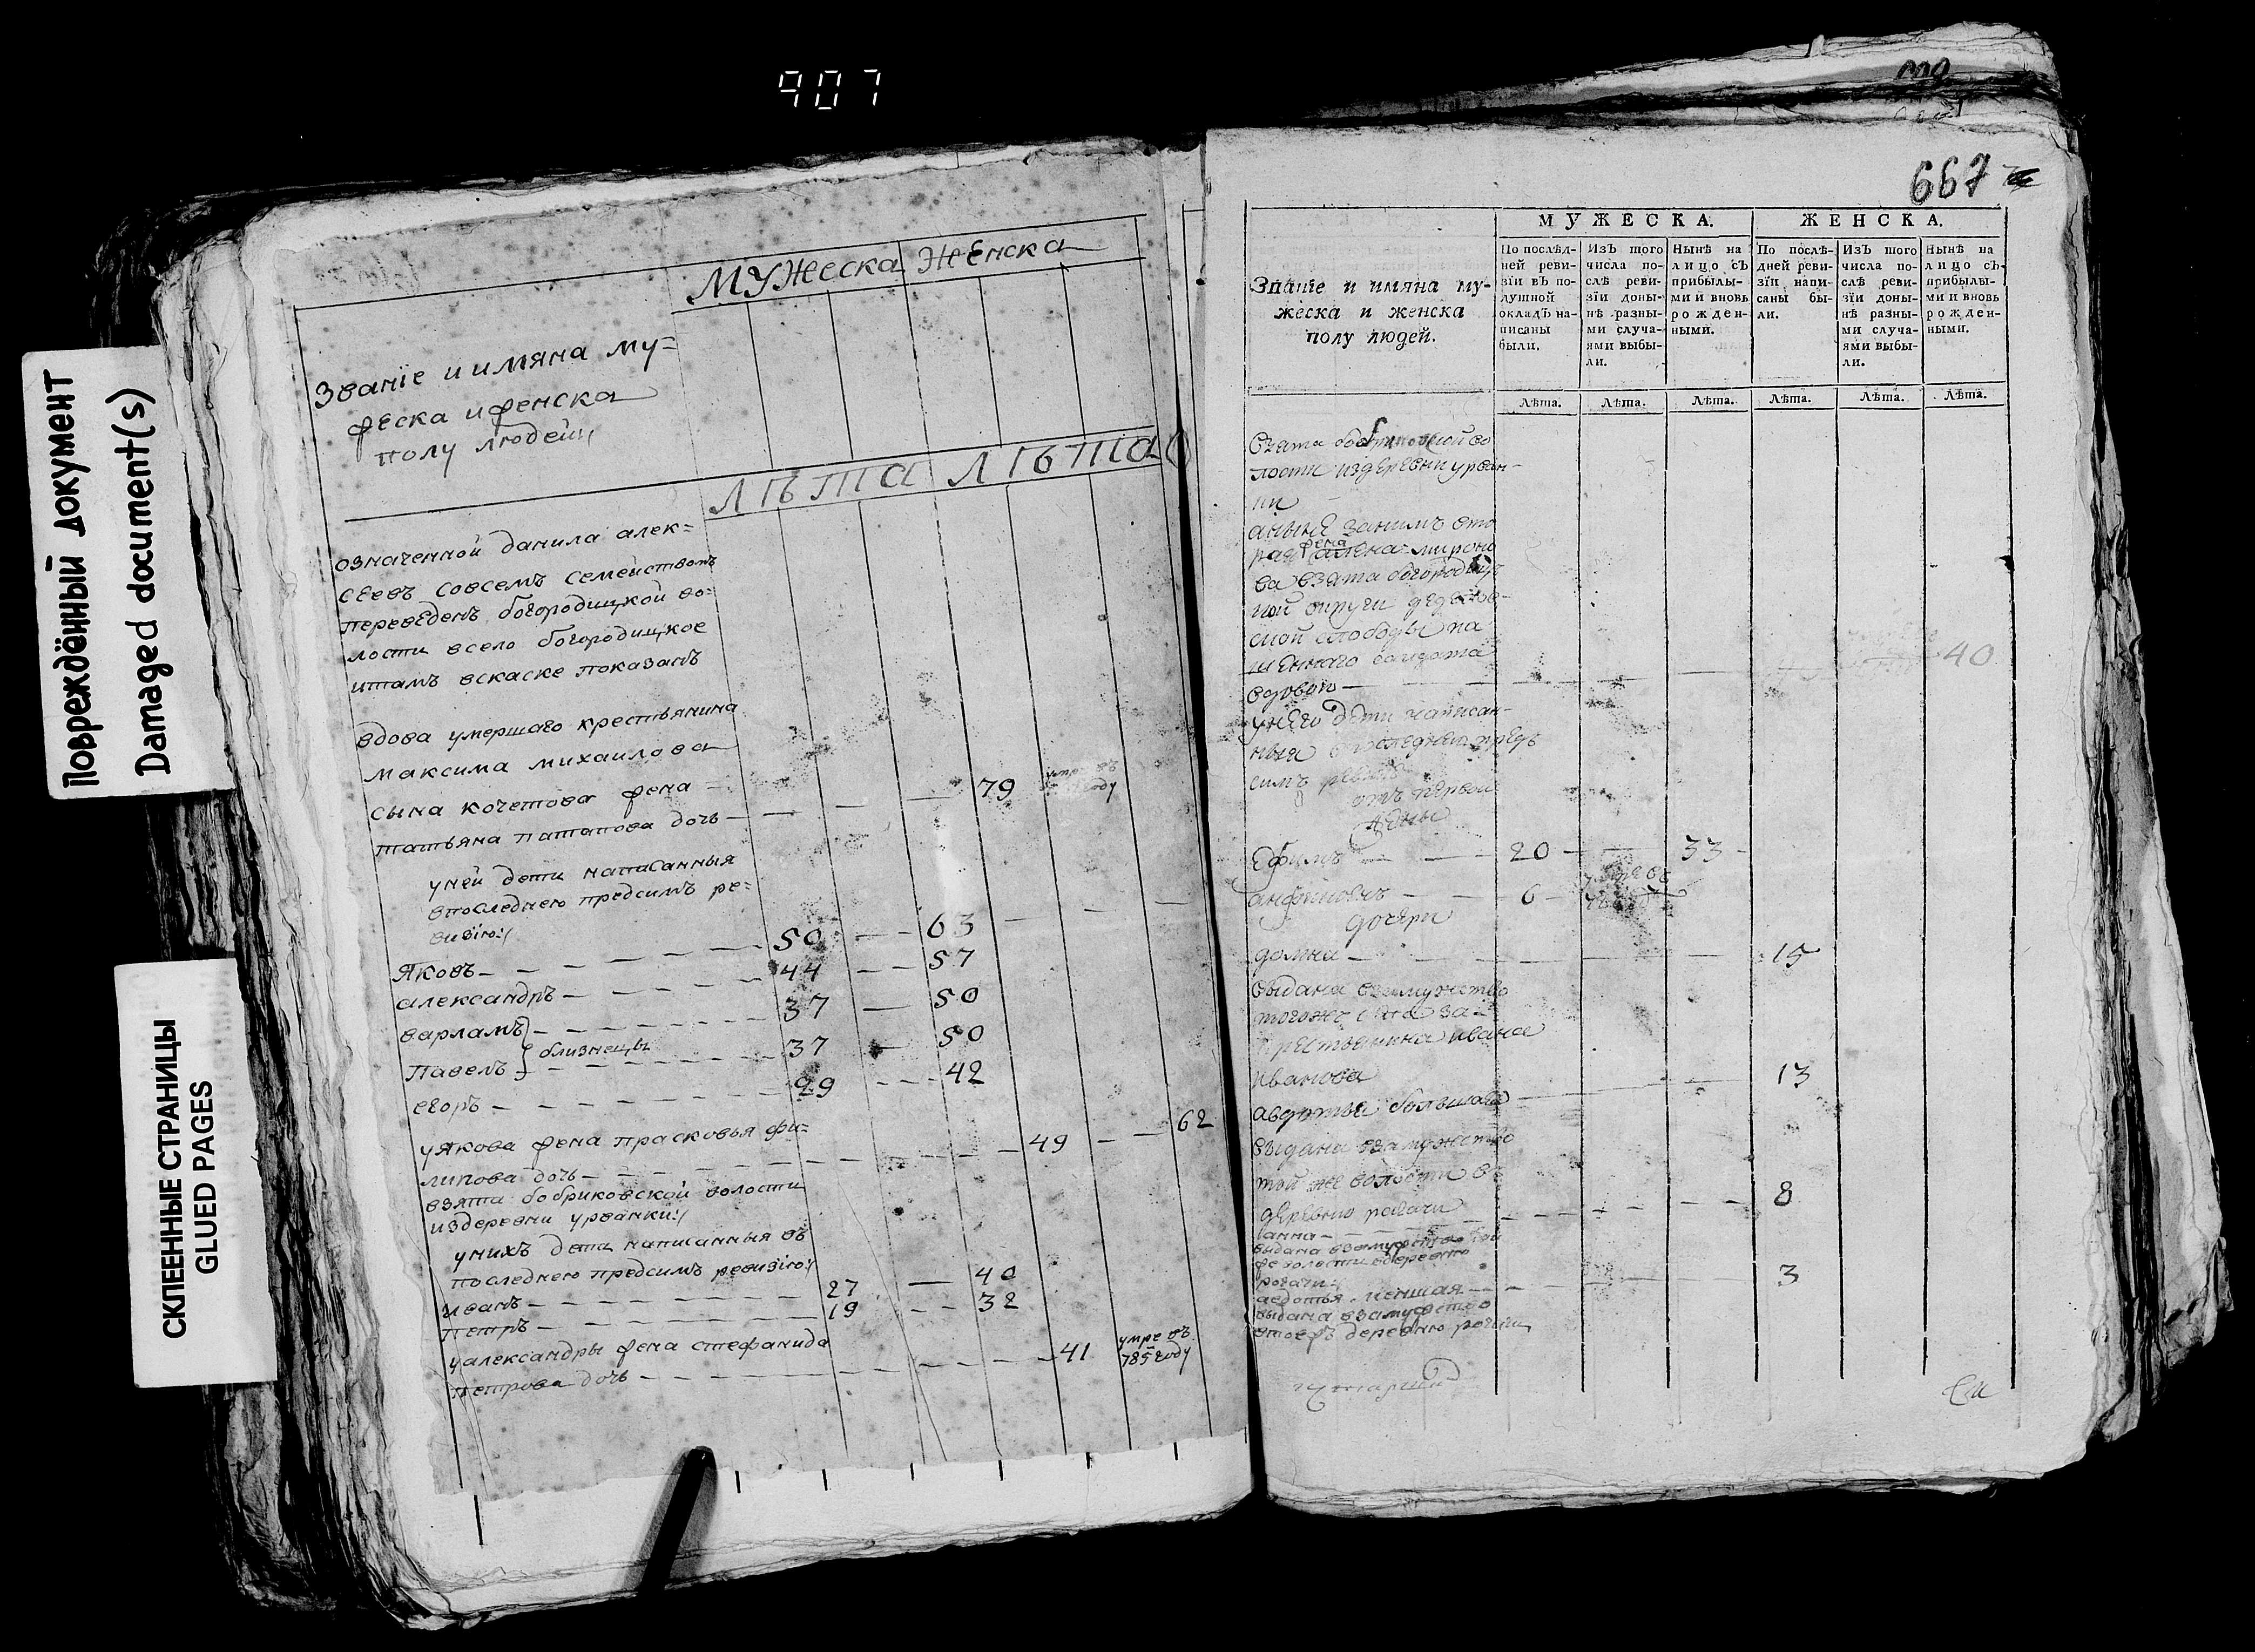 907
Повреждённый документ
Damaged document(s)
СКЛЕЕННЫЕ СТРАНИЦЫ
GLUED PAGES
мужеска женска
Званіе и имяна му=
жеска и женска
полу людей:/
лѣта лѣта
означенной данила алек=
сеевъ совсемъ семействомъ
переведенъ богородицкой во=
лости всело богородицкое
итамъ вскаске показанъ
вдова умершаго крестьянина
максима михаилова
сына кочетова жена —
татьяна патапова дочь — — — — 79
уней дети написанныя
впоследнею предсимъ ре=
визію:/
Яковъ — — — — 50 — — 63
александръ — — — — 44 — — 57
варламъ — — — — 37 — 50
близнецы
Павелъ — — — — 37 — 50
егоръ — — — — 29 — — 42
уякова жена прасковья фи=
липова дочь — — — — 49 — — 62
взята бобриковской волости
издеревни урванки:/
унихъ дети написанныя въ
последнею предсимъ ревизію:/
иванъ — — — — 27 — 40
петръ — — — — 19 — — 32
уалександры жена стефанида
петрова дочь — — — — 41 умре въ
785 году
667
Званіе и имяна му-
жеска и женска
полу людей.
МУЖЕСКА.
ЖЕНСКА.
По послѣд-
ней реви-
зіи въ по-
душной
окладъ на-
писаны
были.
Изъ того
числа по-
слѣ реви-
зіи доны-
нѣ разны-
ми случа-
ями выбы-
ли.
Нынѣ на
лицо съ
прибылы-
ми и вновь
рожден-
ными.
По послѣ-
дней реви-
зіи напи-
саны бы-
ли.
Изъ того
числа по-
слѣ реви-
зіи доны-
нѣ разны-
ми случа-
ями выбы-
ли.
Нынѣ на
лицо съ
прибылы-
ми и вновь
рожден-
ными.
Лѣта. Лѣта. Лѣта. Лѣта. Лѣта. Лѣта.
взята бобриковской во
лости издеревни урван-
ки
анынѣ занимъ вто
рая жена алена миронo
ва взята богородиц
кой округи дедилов-
ской слободы па
шеннаго салдата
вдовою — — — 40
унего дети написан-
ныя впоследнею предъ
симъ ревизію
отъ первой
жены
Ефимъ — — 20 — — 33
анфиногенъ — — 6
дочери
домна — — — 15
выдана взамужство
тогожъ села за
крестьянина ивана
иванова
авдотья большая — — — 13
выдана взамужство
той же волости въ
деревню рагачи — — — 8
анна —
выдана взамужство той
же волости вдеревню
рогачи:/
авдотья меншая — — — 3
выдана взамужство
втоежъ деревню рогачи